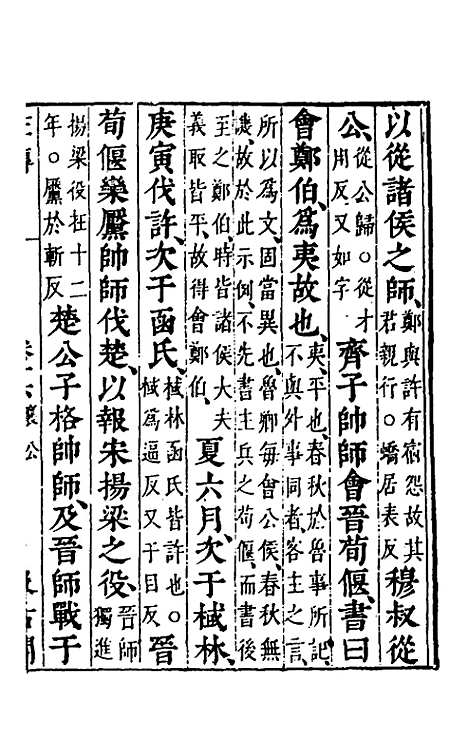 以從諸侯之師、鄭與許有宿怨故其君親行○蟜居表反穆叔從
公、從公歸○從才用反又如字齊子帥師會晉荀偃、書曰
會鄭伯、爲夷故也、夷、平也、春秋於魯事所記、不與外事同者、客主之言、
所以爲文、固當異也、魯卿每會公侯、春秋無譏、故於此示例、不先書主兵之荀偃、而書後
至之鄭伯、時皆諸侯大夫義取皆平、故得會鄭伯、夏六月、次于棫林、
庚寅伐許、次于函氏、棫林函氏皆許也○棫爲逼反又于目反晉
荀偃欒黶帥師伐楚、以報宋揚梁之役、晉師獨進
揚梁役在十二年○黶於斬反楚公子格帥師、及晉師戰于
襄公